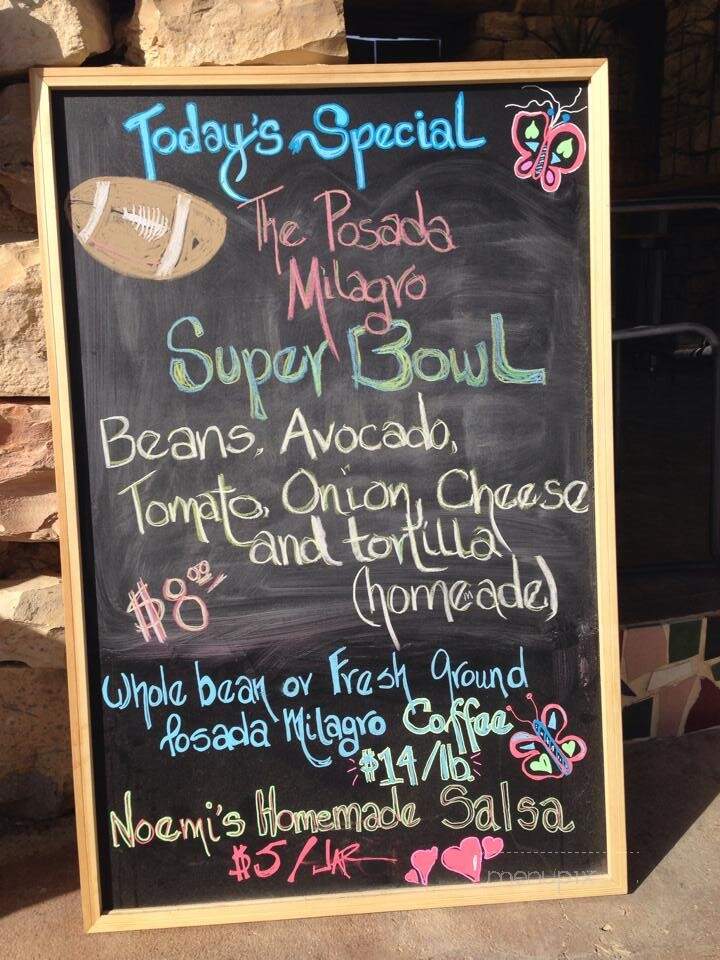 Today's Special
The Posada
Milagro
Super Bowl
Beans, Avocado,
Tomato, Onion, Cheese
and tortilla
(homeade)
$8.00
Whole bean or Fresh Ground
Posada Milagro Coffee
$14/lb.
Noemi's Homemade Salsa
$5/JAR
menupix